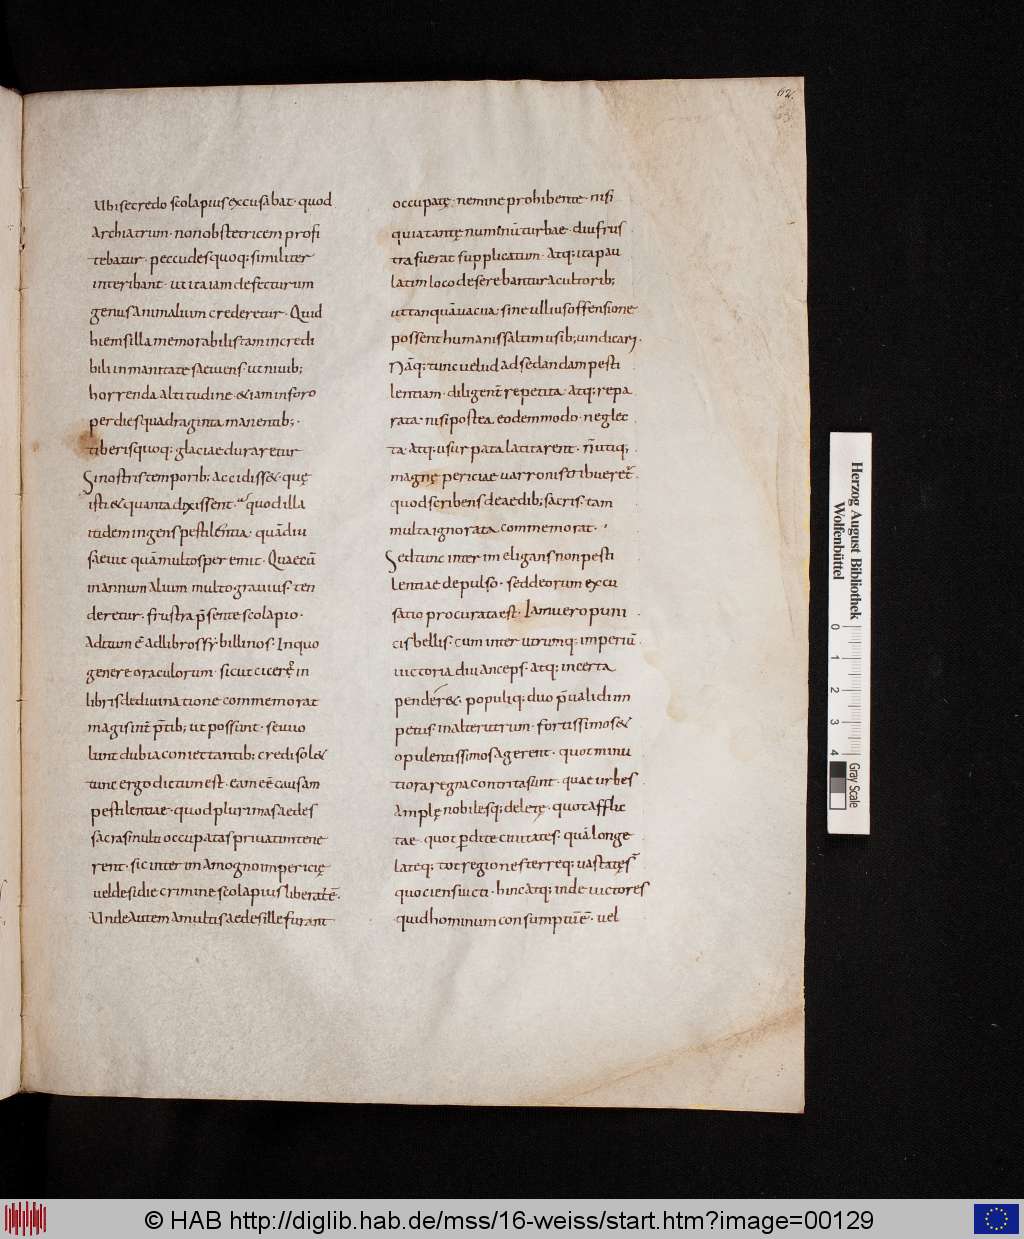 62.
Albi se credo scolapius excusabat· quod
Archiatrum· non obstetricem profi
tebatur· peccudes quoq; similiter
interibant· ut ita iam defecturum
genus animalium crederetur· Quid
hiems illa memorabilis tam incredi
bili inmanitate saeuiens· ut niuib;
horrenda altitudine· & iam in foro
per dies quadraginta manentib;·
tiberis quoq; glaciae duraretur
Si nostris temporib; accidiss&· quę
isti & quanta dixissent· quod illa
itidem ingens pestilentia· quādiu
saeuit quā multos peremit· Quae cū
in annum alium multo grauius· ten
deretur· frustra p̄sente scolapio·
Aditum ē ad libros sy·billinos· In quo
genere oraculorum· sicut cicero in
libris de diuinatione commemorat
magis int̄ p̄tib; ut possunt· seu uo
lunt dubia coniectantib; credi sol&
tunc ergo dictum est· eam eē causam
pestilentiae· quod plurimas aedes
sacras multi occupatas priuatim tene
rent· sic interim a mogno imperitię
uel desidie crimine scolapius liberat' ē·
Unde autem a multis aedes ille fuerant
occupatę· nemine prohibente· nisi
quia tantę numinū turbae· diu frus
tra fuerat supplicatum· Atq; ita pau
latim loco desere bantur a cultorib;
ut tanquā uacua· sine ullius offensione
possent humanis saltim usib; uindicari·
Nāq; tunc uelud ad sedandam pesti
lentiam· diligent̄ repetita· atq; repa
rata· nisi postea eodem modo· neglec
ta· atq; usurpata latitarent· n̄ utiq;
magnę periciae uarroni tribueret̄·
quod scribens de aedib; sacris· tam
multa ignorata commemorat·
Sed tunc interim eligans non pesti
lentiae depulsio· sed deorum excu
satio procurata est· Iam uero puni
cis bellis· cum inter utrumq; imperiū·
uictoria diu anceps· atq; incerta
pender&· populiq; duo p̄ualidi im
petus in alterutrum· fortissimos &
opulentissimos agerent· quot minu
tiora regna contrita sunt· quae urbes
Amplę nobilesq; deletę· quot afflic
tae· quot p̄dite ciuitates· quā longe
lateq; tot regiones terreq; uastatę s̄t
quociens uicti· hinc atq; inde uictores
quid hominum consumptū ē· uel
Herzog August Bibliothek
Wolfenbüttel
0 1 2 3 4
Gray Scale
© HAB http://diglib.hab.de/mss/16-weiss/start.htm?image=00129